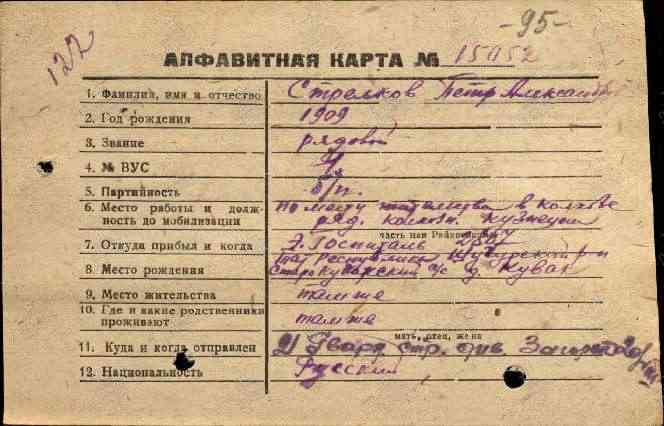 -95-
122
АЛФАВИТНАЯ КАРТА № 15952
1. Фамилия, имя и отчество Стрелков Петр
2. Год рождения 1909
3. Звание рядовой
4. № ВУС
5. Партийность б/п.
6. Место работы и долж- по месту в колхозе
ность до мобилизации ряд. колхоз.
часть или
7. Откуда прибыл и когда Э. Госпиталь
Тат Республика р-н
8. Место рождения с/с д. Кувак
9. Место жительства там же
10. Где и какие родственники
проживают там же
мать, отец, жена
11. Куда и когда отправлен 21 Гвард стр. див.
12. Национальность Русский